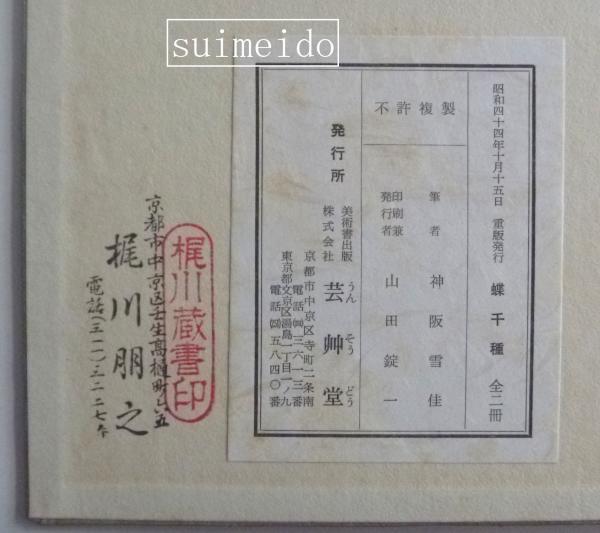 suimeido
昭和四十四年十月十五日 重版発行
蝶千種 全二冊
不許複製
筆者 神阪雪佳
印刷兼
発行者 山田錠一
発行所
美術書出版
株式会社
芸艸堂
うんそうどう
京都市中京区寺町二条南
電話 三六一三番
東京都文京区湯島一丁目一ノ九
電話 五八四〇番
梶川蔵書印
京都市中京区壬生高樋町六五
梶川朋之
電話(三一一)三二二七